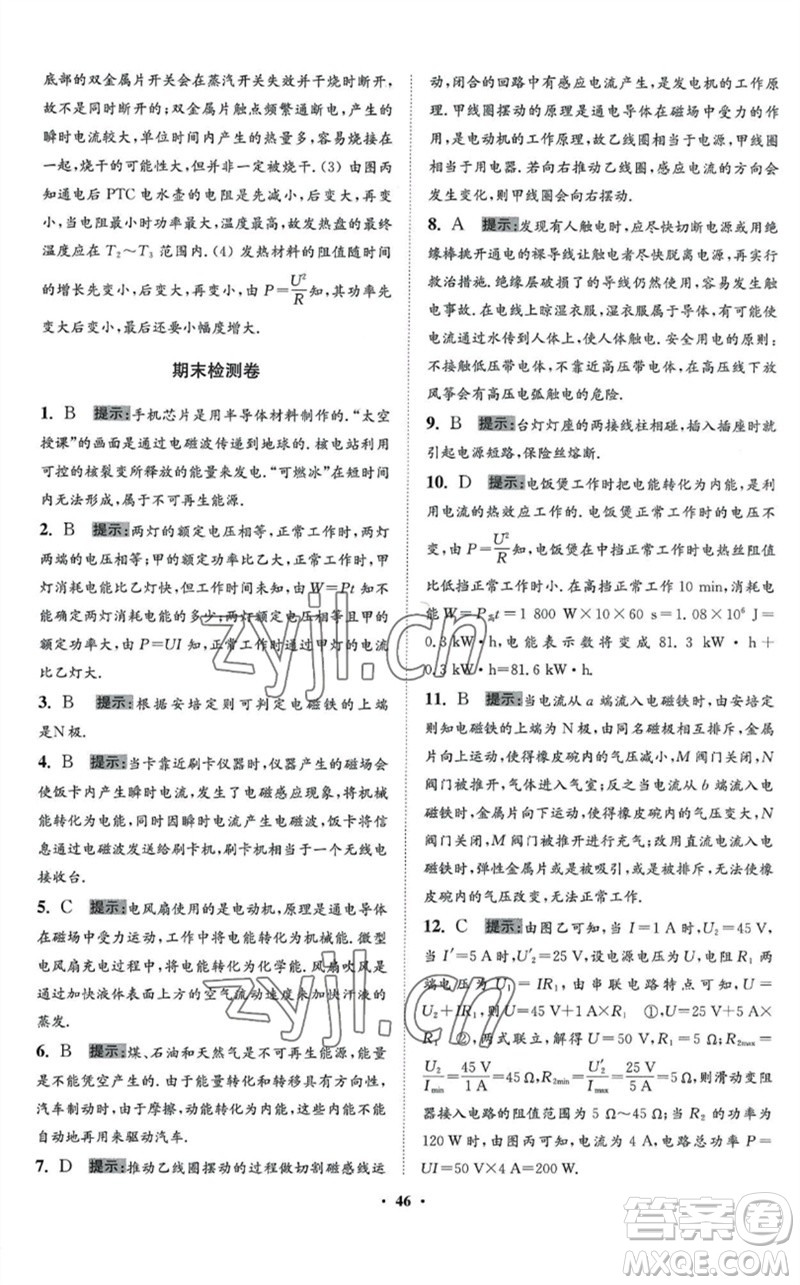 底部的双金属片开关会在蒸汽开关失效并干烧时断开,
故不是同时断开的;双金属片触点频繁通断电,产生的
瞬时电流较大,单位时间内产生的热量多,容易烧接在
一起,烧干的可能性大,一般不易被烧干.(3) 由图丙
知通电后 PTC 电水壶的电阻是先减小,后变大,再减
小,当电阻最小时功率最大,温度最高,故发热盘的最终
温度应在 T₂～T₃ 范围内.(4) 发热材料的阻值随时间
的增长先变小,后变大,再变小,由 P=U²/R知,其功率先
变大后变小,最后还要小幅度增大.
期末检测卷
1. B 提示:手机芯片是用半导体材料制作的.“太空
授课”的画面是通过电磁波传递到地球的. 核电站利用
可控的核裂变所释放的能量来发电.“可燃冰”在短时间
内无法形成,属于不可再生能源.
2. B 提示:两灯的额定电压相等,正常工作时,两灯
两端的电压相等;甲的额定功率比乙大,正常工作时,甲
灯消耗电能比乙灯快,但工作时间未知,由 W=Pt 知两
灯消耗电能的多少未知;两灯的额定电压相等且甲的
额定功率大,由 P=UI 知,正常工作时通过甲灯的电流
比乙灯大.
3. B 提示:根据安培定则可判定电磁铁的上端
是N极.
4. B 提示:当卡靠近刷卡仪器时,仪器产生的磁场会
使饭卡内产生瞬时电流,发生了电磁感应现象,将机械
能转化为电能,同时因瞬时电流产生电磁波,饭卡将信
息通过电磁波发送给刷卡机,刷卡机相当于一个无线电
接收台.
5. C 提示:电风扇使用的是电动机,原理是通电导体
在磁场中受力运动,工作中将电能转化为机械能. 微型
电风扇充电过程中,将电能转化为化学能. 风扇吹风是
通过加快液体表面上的空气流动速度来加快汗液的
蒸发.
6. B 提示:煤、石油和天然气是不可再生能源,能量
是不能凭空产生的. 能量的转化和转移具有方向性,
汽车制动时,由于摩擦,动能转化的内能,这些内能不能
自动地再用来驱动汽车.
7. D 提示:推动乙线圈摆动的过程做切割磁感线运
动,闭合的回路中有感应电流产生,是发电机的工作原
理. 甲线圈摆动的原理是通电导体在磁场中受力的作
用,是电动机的工作原理,故乙线圈相当于电源,甲线圈
相当于用电器. 若向右推动乙线圈,感应电流的方向会
发生变化,则甲线圈会向右摆动.
8. A 提示:发现有人触电时,应尽快切断电源或用绝
缘棒挑开通电的裸导线让触电者尽快脱离电源,再实行
救治措施. 绝缘层破损的导线仍然使用,容易发生触
电事故. 在电线上晾湿衣服,湿衣服是导体,容易使
电流通过水传到人体上,使人体触电. 安全用电的原则:
不接触低压带电体,不靠近高压带电体. 在高压线下放
风筝会有高压电弧触电的危险.
9. B 提示:台灯灯座的两接线柱相碰,插入插座时就
引起电源短路,保险丝熔断.
10. D 提示:电饭煲工作时把电能转化为内能,是利
用电流的热效应工作的. 电饭煲工作时,电源的电压不
变,由 P=U²/R知,电饭煲在中挡正常工作时电热丝阻值
比在低挡正常工作时小. 在高挡工作 10 min,消耗电
能 W=P高t=1 800 W×10×60 s=1.08×10⁶ J=
0.3 kW·h,电能表示数将变成 81.3 kW·h+
0.3 kW·h=81.6 kW·h.
11. B 提示:当电流从 a 端流入电磁铁时,由安培定
则知电磁铁的上端为 N 极,由同名磁极互相排斥,金属
片向上运动,使得橡皮碗内的气压减小,M 阀门关闭,N
阀门被推开,气体进入气室;反之,当电流从 b 端流入电
磁铁时,金属片向下运动,使得橡皮碗内的气压变大,N
阀门关闭,M 阀门被推开,进行充气;改用直流电源给电
磁铁时,弹性金属片或是被吸引,或是被排斥,不会使橡
皮碗内的气压改变,无法正常工作.
12. C 提示:由图乙可知,当 I=1 A时,U₂=45 V,
当 I′=5 A时,U′₂=25 V,设电源电压为 U,电阻 R₁ 两
端电压为 U₁=IR₁,由串联电路特点可知,U=
U₂+IR₁,则 U=45 V+1 A×R₁ ①,U=25 V+5 A×
R₁ ②,两式联立,解得 U=50 V,R₁=5 Ω;R₂max=
U₂/Imin=45 V/1 A=45 Ω,R₂min=U′₂/Imax=25 V/5 A=5 Ω,则滑动变阻
器接入电路的阻值范围为 5 Ω～45 Ω;当 R₂ 的功率为
120 W 时,由图丙可知,电流为 4 A,电路总功率为 P=
UI=50 V×4 A=200 W.
· 46 ·
zyjl.cn
zyjl.cn
答案卷
MXQE.COM